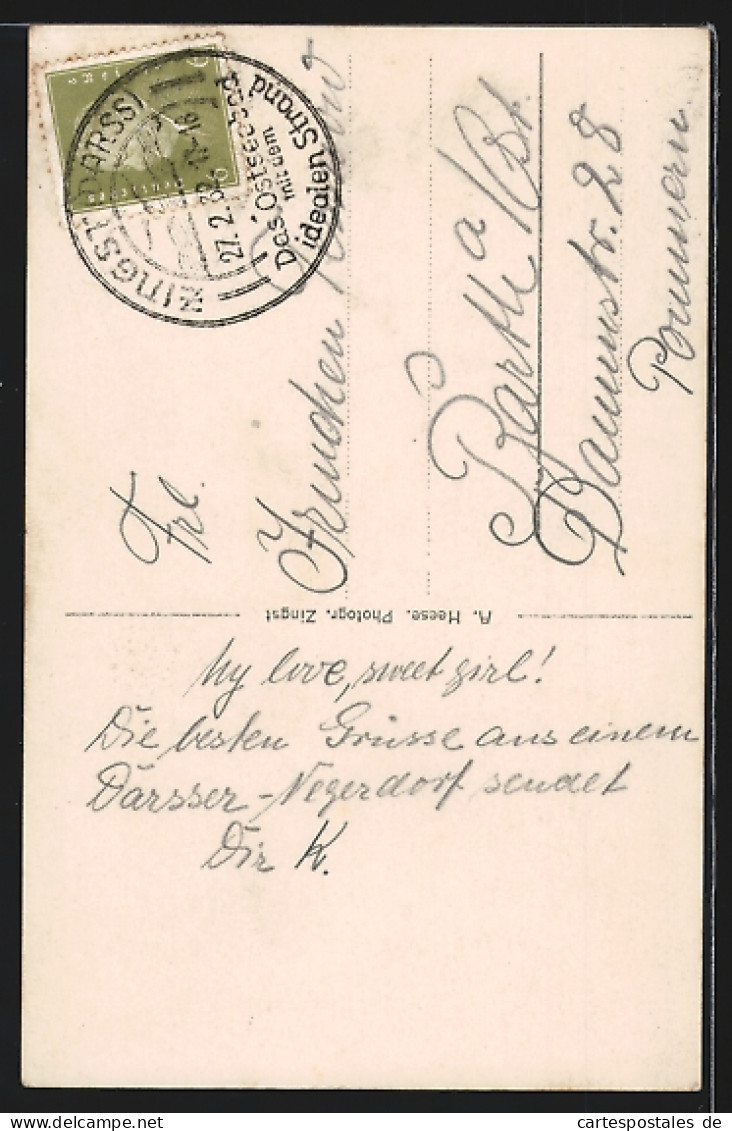 ZINGST (DARSS)
27.2.32.
Das Ostseebad
mit dem
idealen Strand
Frl.
Barth a/Bst.
Dammstr. 28
Pommern
A. Heese. Photogr. Zingst
My love, sweet girl!
Die besten Grüsse aus einem
Darsser-Negerdorf sendet
Dir K.
cartespostales de